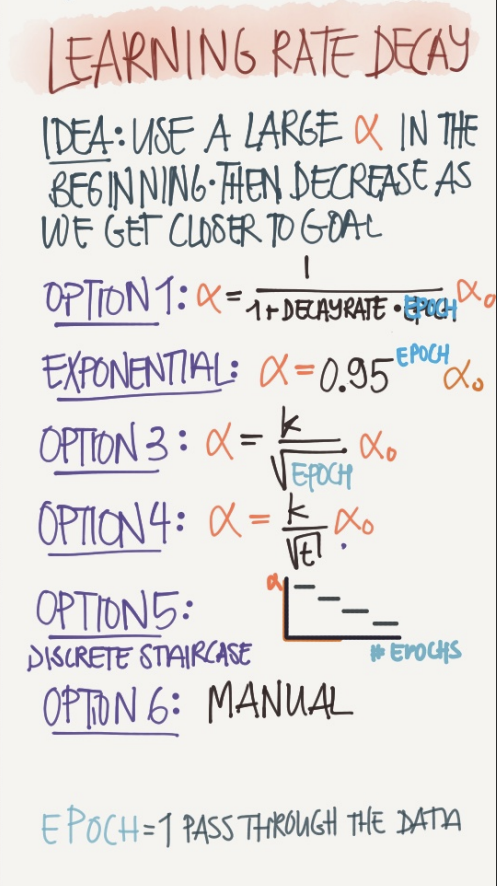 LEARNING RATE DECAY
IDEA: USE A LARGE α IN THE
BEGINNING. THEN DECREASE AS
WE GET CLOSER TO GOAL
OPTION 1: α = 1 / (1 + DECAYRATE · EPOCH) α₀
EXPONENTIAL: α = 0.95^EPOCH α₀
OPTION 3: α = k / √EPOCH α₀
OPTION 4: α = k / √t α₀
OPTION 5:
α
DISCRETE STAIRCASE
# EPOCHS
OPTION 6: MANUAL
EPOCH = 1 PASS THROUGH THE DATA